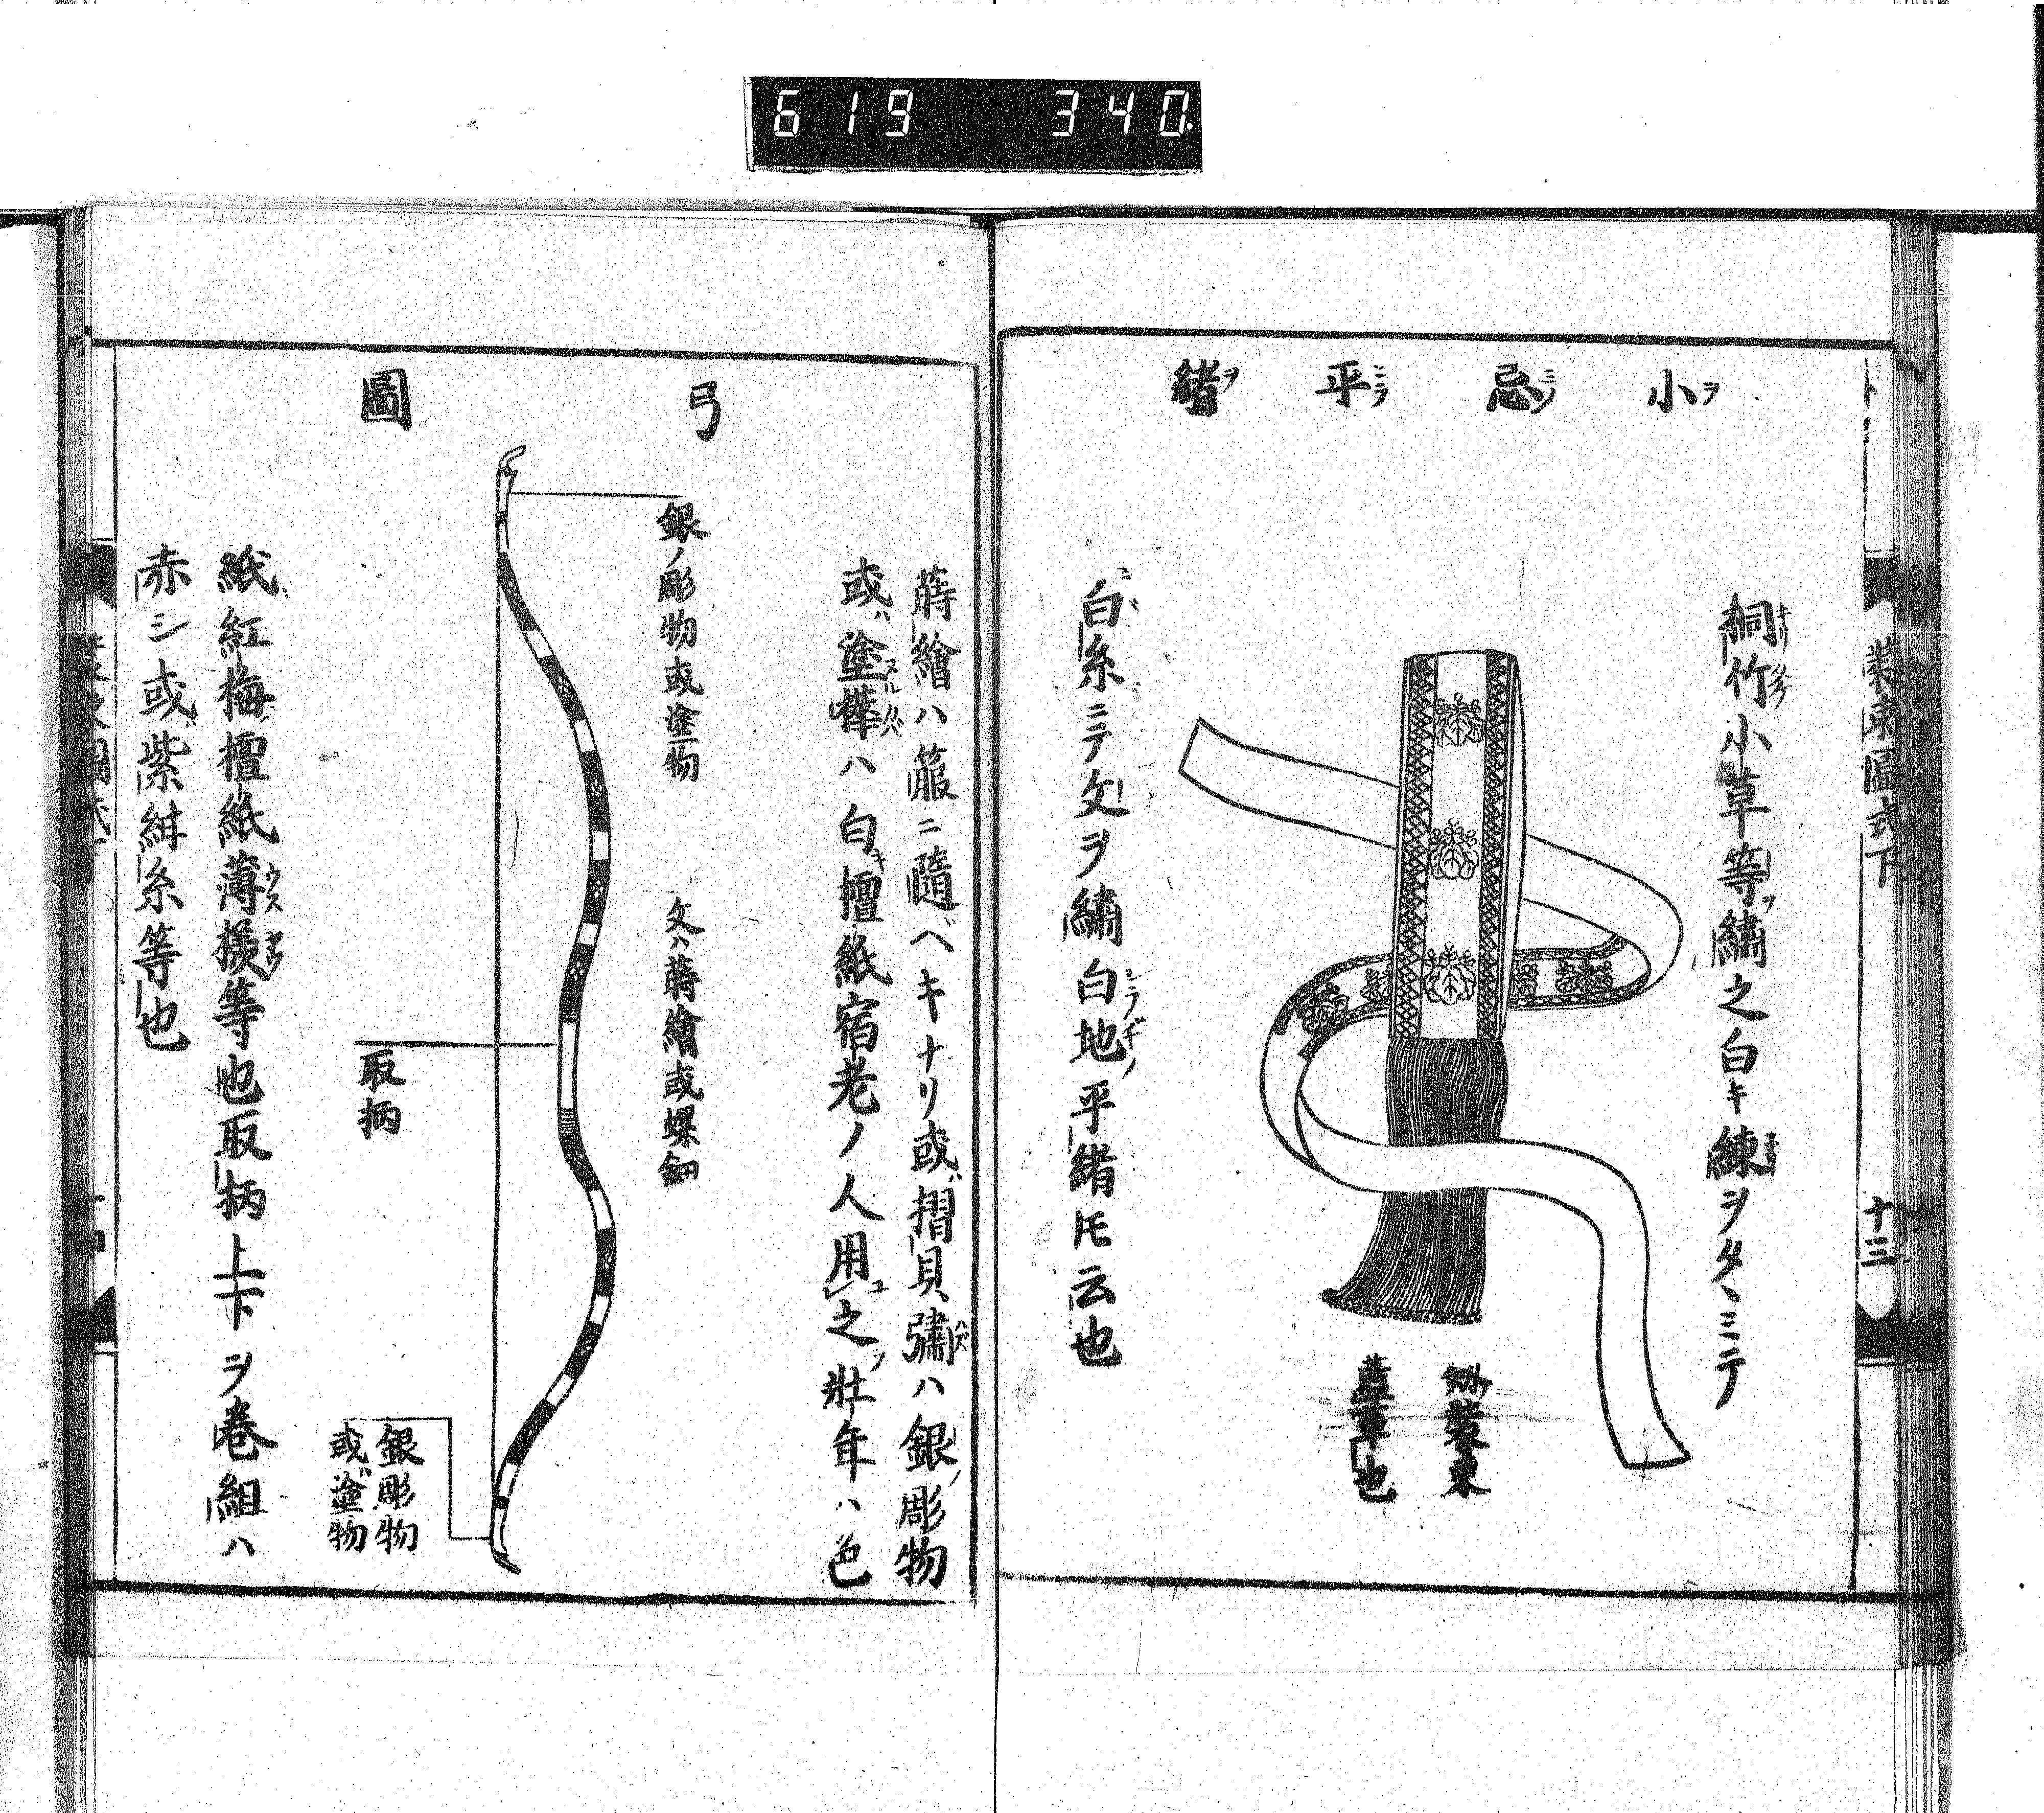 619 340
裝束圖式下
十三
小忌平緒
桐竹小草等繍之白キ練ヲタヽミテ
劔裝束
藍革也
白糸ニテ文ヲ繍白地平緒トモ云也
弓圖
蒔繪ハ箙ニ隨ベキナリ或摺貝彇ハ銀ノ彫物
或ハ塗樺ハ白檀紙宿老ノ人用之壯年ハ色
銀ノ彫物或塗物
文ハ蒔繪或螺鈿
取柄
銀彫物
或塗物
紙紅梅檀紙薄様等也取柄上下ヲ巻組ハ
赤シ或紫紺糸等也